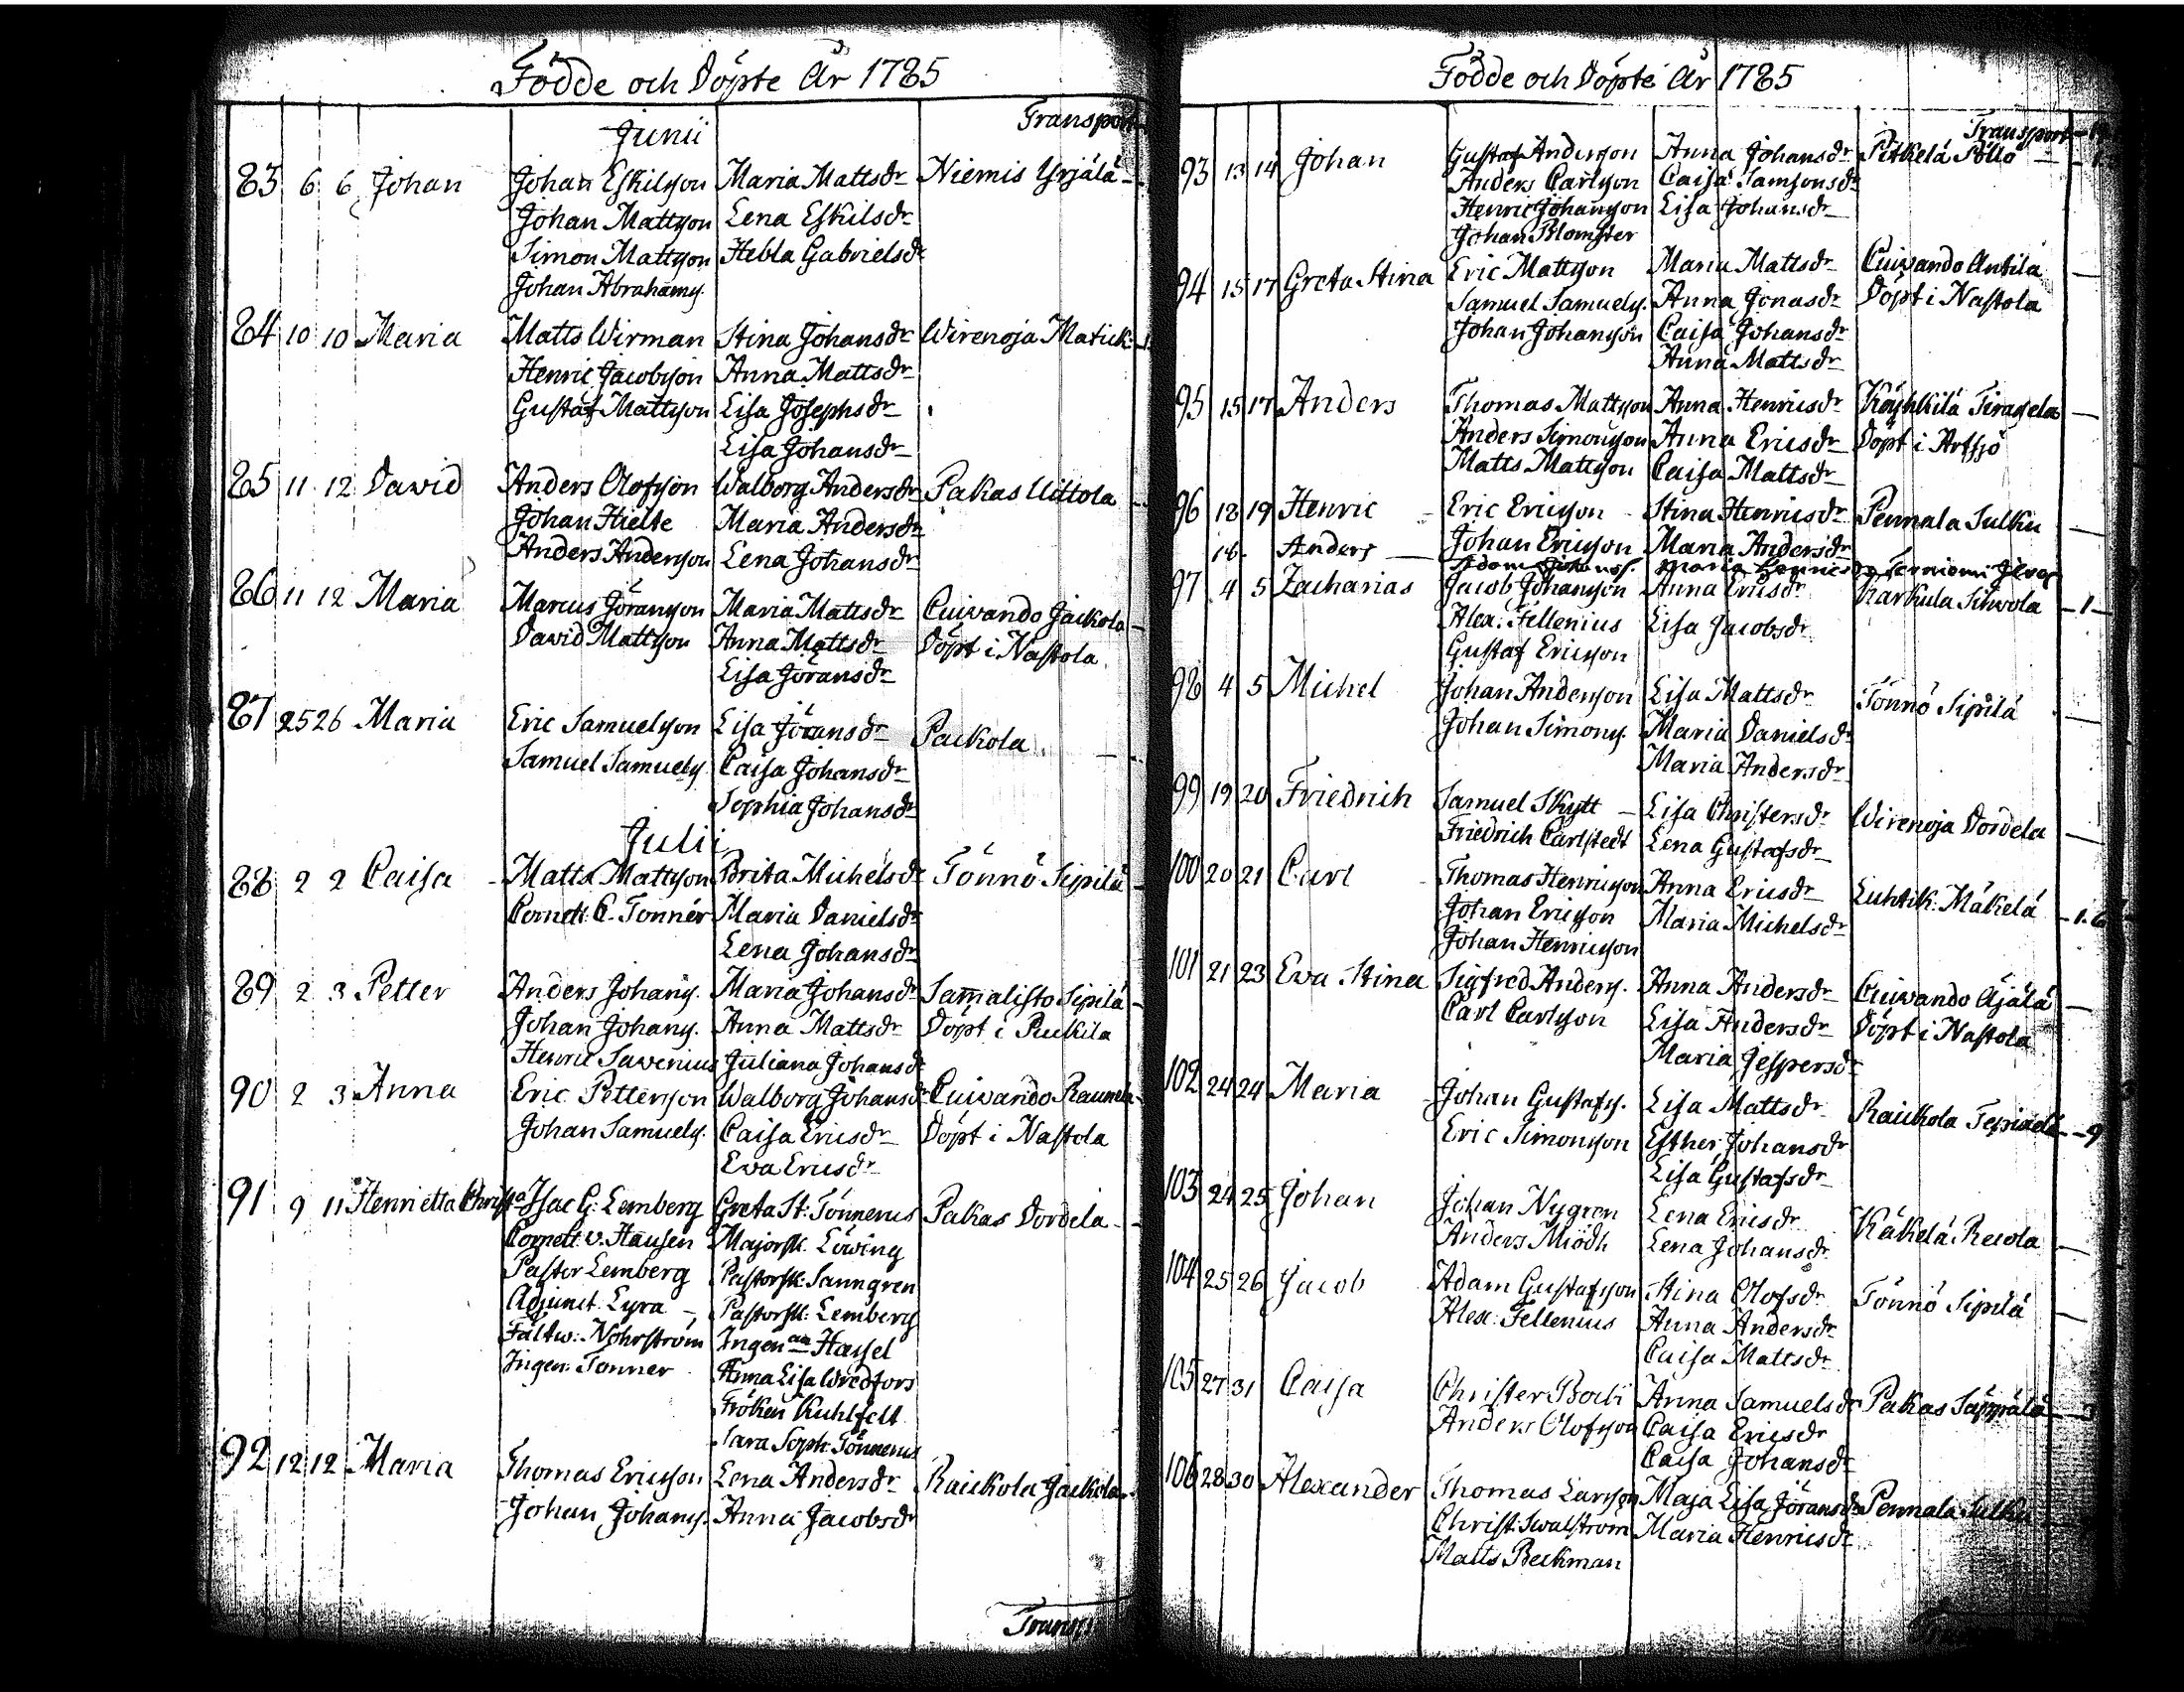 Födde och Döpte År 1785
Transport
Junii
83 6 6 Johan Johan Eskilsson Maria Mattsdr Niemis Yrjälä
Johan Mattsson Lena Eskilsdr
Simon Mattsson Hebla Gabrielsdr
Johan Abrahams.
84 10 10 Maria Matts Wirman Stina Johansdr Wirenoja Matick
Henric Jacobsson Anna Mattsdr
Gustaf Mattsson Lisa Josephsdr
Lisa Johansdr
85 11 12 David Anders Olofsson Walborg Andersdr Pakas Uottola
Johan Hielte Maria Andersdr
Anders Andersson Lena Johansdr
86 11 12 Maria Marcus Göransson Maria Mattsdr Cuivando Jackola
David Mattsson Anna Mattsdr Döpt i Nastola
Lisa Göransdr
87 25 26 Maria Eric Samuelsson Lisa Göransdr Packola
Samuel Samuels. Caisa Johansdr
Sophia Johansdr
Julii
88 2 2 Caisa Matts Mattsson Brita Michelsdr Tönnö Sipilä
Cornett. C. Tonnér Maria Danielsdr
Lena Johansdr
89 2 3 Petter Anders Johans. Maria Johansdr Samalisto Sipilä
Johan Johans. Anna Mattsdr Döpt i Puckila
Henric Savenius Juliana Johansdr
90 2 3 Anna Eric Pettersson Walborg Johansdr Cuivando Raunela
Johan Samuels. Caisa Ericsdr Döpt i Nastola
Eva Ericsdr
91 9 11 Henrietta Christa Isac G. Lemberg Greta St. Tönnerus Pakas Dordela
Cornett. v. Hausen Majorsk. Löwing
Pastor Lemberg Pastorsk. Sanngren
Adjunct. Lyra Pastorsk. Lemberg
Fältw: Nohrström Ingen an Hassel
Ingen: Tonner Anna Lisa Wredfors
Fröken Kuhlfelt
Sara Soph. Tönnerus
92 12 12 Maria Thomas Ericsson Lena Andersdr Raickola Jackola
Johan Johans. Anna Jacobsdr
Transp
Födde och Döpte År 1785
Transport
93 13 14 Johan Gustaf Andersson Anna Johansdr Pitkelä Pöllö
Anders Carlsson Caisa Samsonsdr
Henric Johansson Lisa Johansdr
Johan Blomster
94 15 17 Greta Stina Eric Mattsson Maria Mattsdr Cuivando Antila
Samuel Samuels. Anna Jonasdr Döpt i Nastola
Johan Johansson Caisa Johansdr
Anna Mattsdr
95 15 17 Anders Thomas Mattsson Anna Henricsdr Köyhkilä
Anders Simonsson Anna Ericsdr Döpt i Artsjö
Matts Mattsson Caisa Mattsdr
96 18 19 Henric Eric Ericsson Stina Henricsdr Pennala Sulku
18. Anders Johan Ericsson Maria Andersdr
Adam Johanss. Maria Henricsdr
97 4 5 Zacharias Jacob Johansson Anna Ericsdr Karkula Sihvola 1
Alex: Fellenius Lisa Jacobsdr
Gustaf Ericsson
98 4 5 Michel Johan Andersson Lisa Mattsdr Tönnö Sipilä
Johan Simons. Maria Danielsdr
Maria Andersdr
99 19 20 Friedrich Samuel Skytt Lisa Christersdr Wirenoja Dordela
Friedrich Carlstedt Lena Gustafsdr
100 20 21 Carl Thomas Henricsson Anna Ericsdr Luhtik. Mäkelä 1.6
Johan Ericsson Maria Michelsdr
Johan Henricsson
101 21 23 Eva Stina Sigfred Anders. Anna Andersdr Cuivando Ajälä
Carl Carlsson Lisa Andersdr Döpt i Nastola
Maria Jespersdr
102 24 24 Maria Johan Gustafs. Lisa Mattsdr Raickola 9
Eric Simonsson Esther Johansdr
Lisa Gustafsdr
103 24 25 Johan Johan Nygren Lena Ericsdr Käkelä Recola
Anders Miödh Lena Johansdr
104 25 26 Jacob Adam Gustafsson Stina Olofsdr Tönnö Sipilä
Alex: Fellenius Anna Andersdr
Caisa Mattsdr
105 27 31 Caisa Christer Anna Samuelsdr Pakas Säppälä
Anders Olofsson Caisa Ericsdr
Caisa Johansdr
106 28 30 Alexander Thomas Larsson Maja Lisa Göransdr Pennala Sulku
Christ. Swalström Maria Henricsdr
Matts Beckman